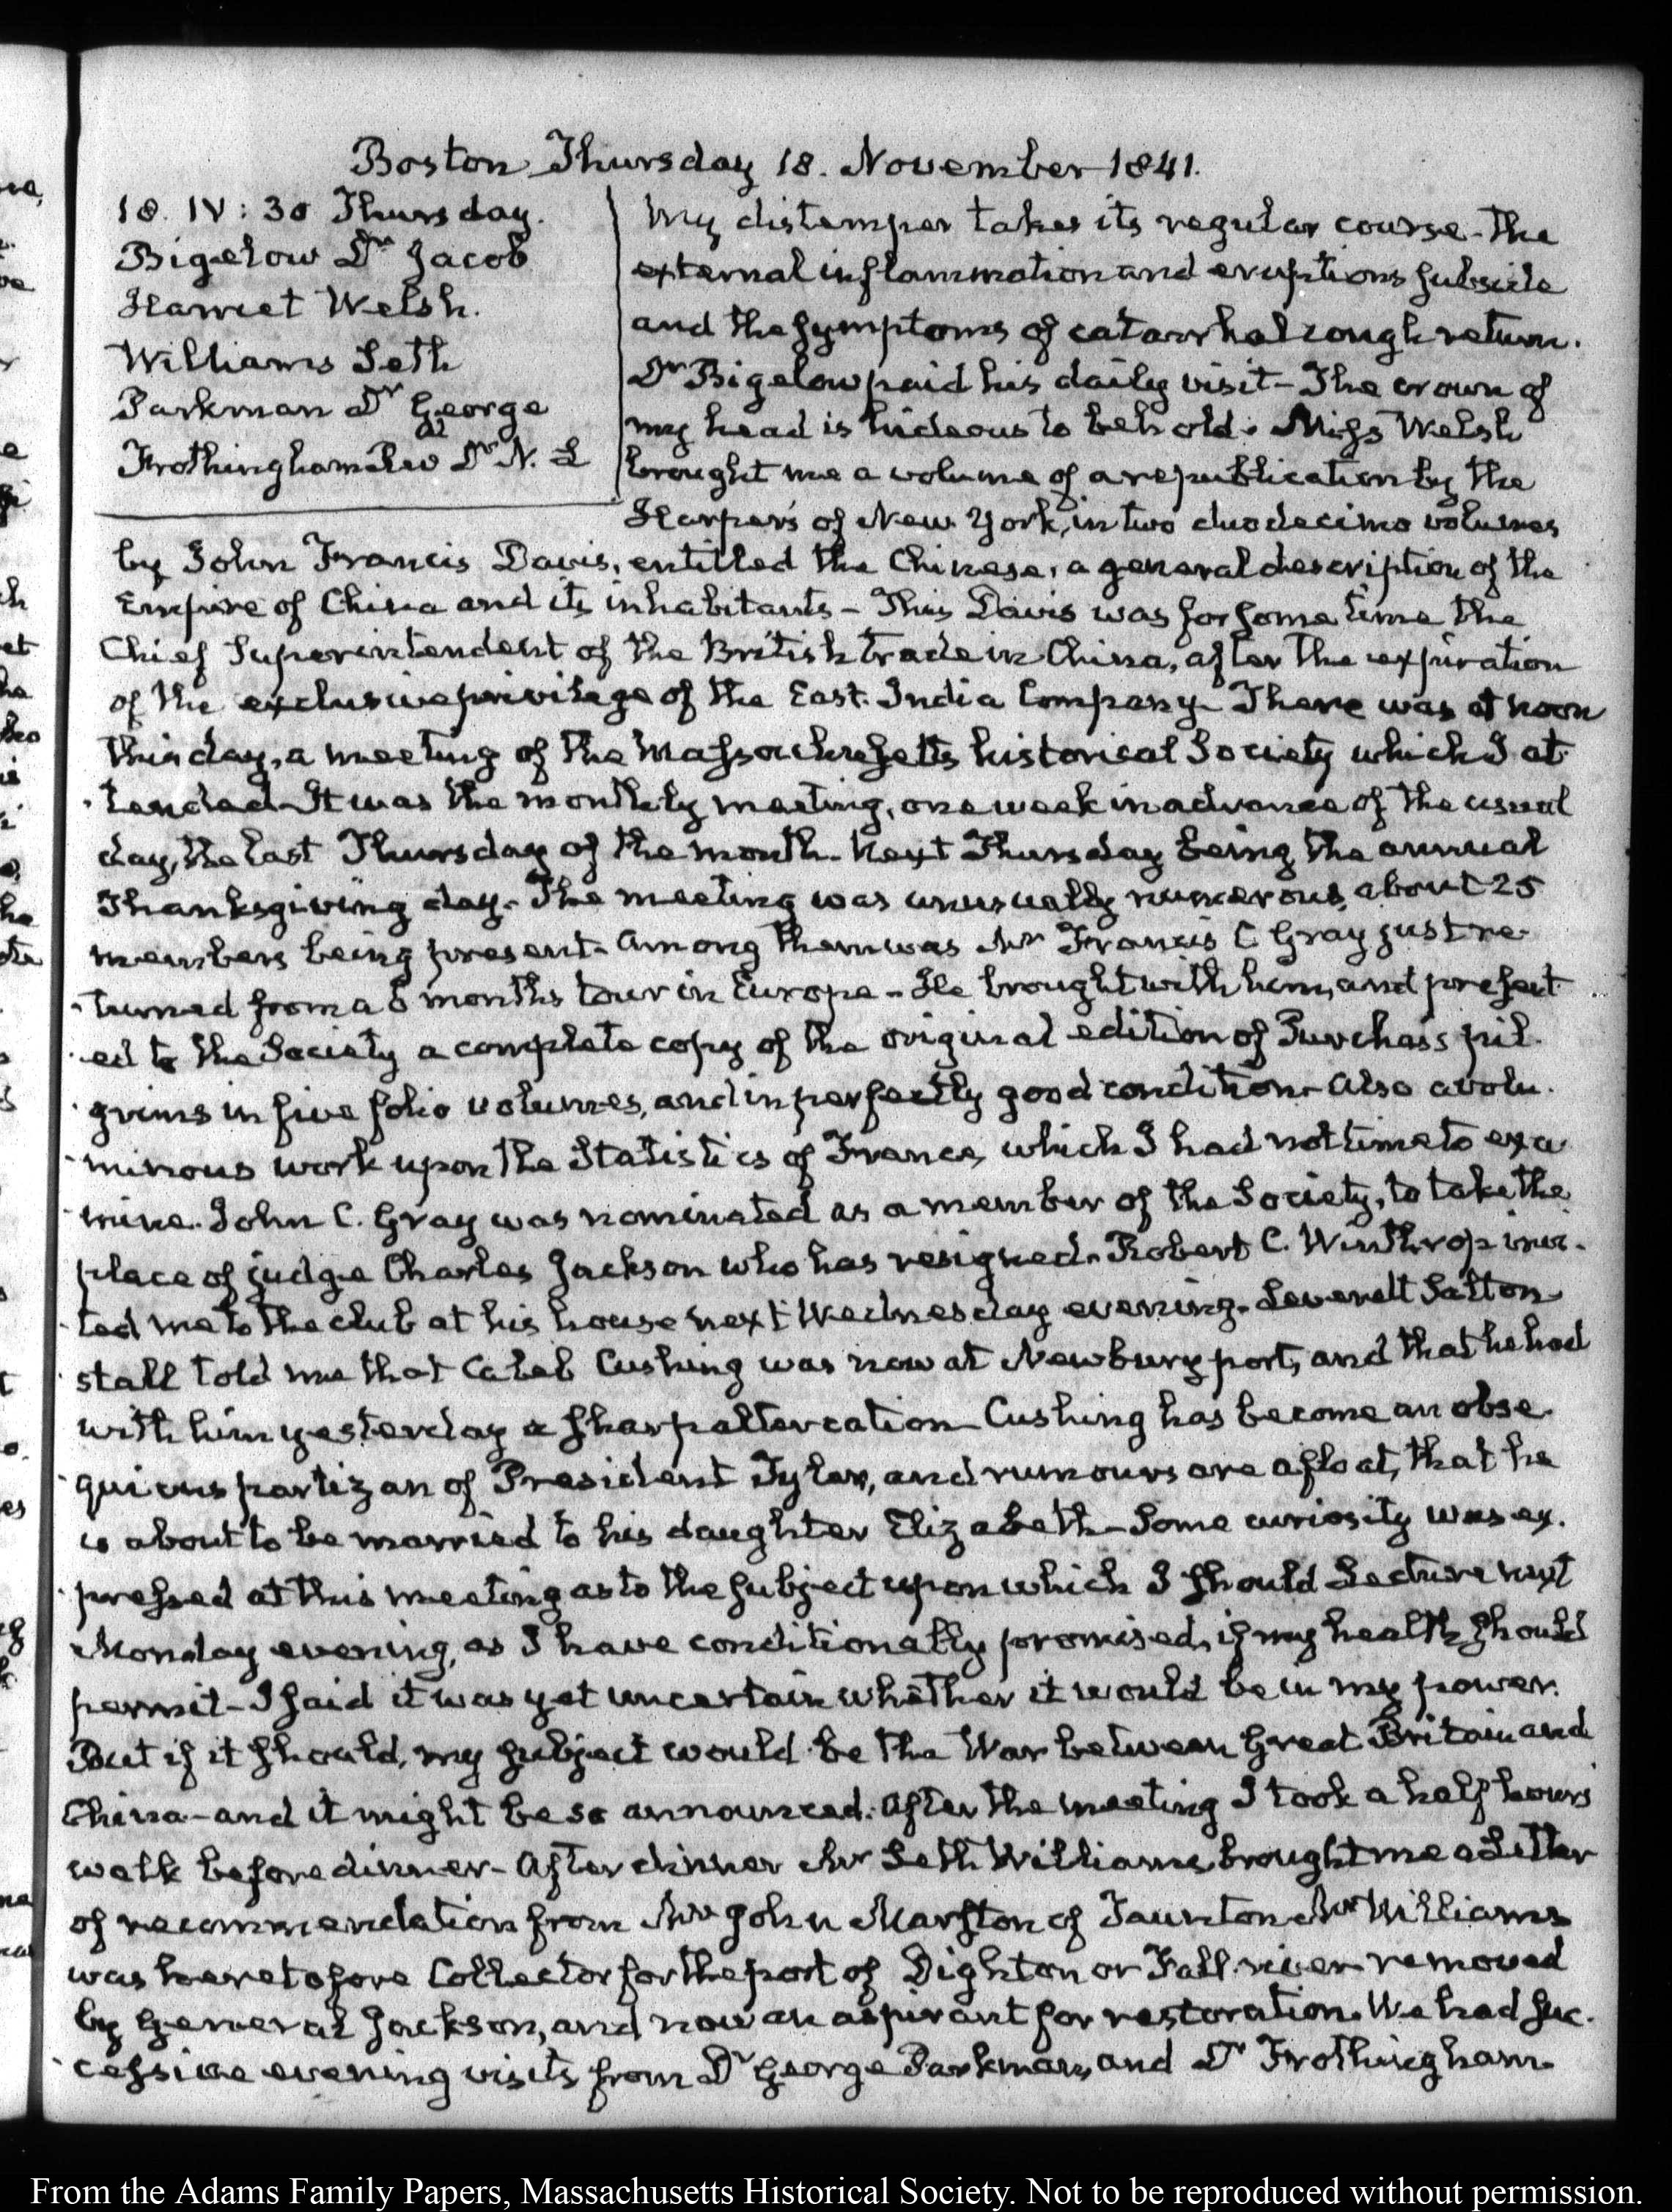 Boston Thursday 18. November 1841.
18. IV: 30 Thursday.
Bigelow Dr Jacob
Harriet Welsh.
Williams Seth
Parkman Dr George
Frothingham Rev Dr N. L
My distemper takes its regular course - the
external inflammation and eruptions subside
and the symptoms of catarrhal cough return.
Dr Bigelow paid his daily visit - The crown of
my head is hideous to behold. Miss Welsh
brought me a volume of a republication by the
Harpers of New York, in two duodecimo volumes
by John Francis Davis, entitled the Chinese, a general description of the
Empire of China and its inhabitants - This Davis was for some time the
Chief Superintendent of the British trade in China, after the expiration
of the exclusive privilege of the East. India Company - There was at noon
this day, a meeting of the Massachusetts historical Society which I at-
-tended - It was the monthly meeting, one week in advance of the usual
day, the last Thursday of the month. Next Thursday being the annual
Thanksgiving day - The meeting was unusually numerous, about 25
members being present - Among them was Mr Francis C Gray just re-
-turned from a 6 months tour in Europe - He brought with him, and present-
-ed to the Society a complete copy of the original edition of Purchas's pil-
-grims in five folio volumes, and in perfectly good condition - Also a volu-
-minous work upon the Statistics of France, which I had not time to exa-
-mine. John C. Gray was nominated as a member of the Society, to take the
place of judge Charles Jackson who has resigned. Robert C. Winthrop invi-
-ted me to the club at his house next Wednesday evening. Leverett Salton-
stall told me that Caleb Cushing was now at Newburyport, and that he had
with him yesterday a sharp altercation - Cushing has become an obse-
-quious partizan of President Tyler, and rumours are afloat, that he
is about to be married to his daughter Elizabeth - Some curiosity was ex-
-pressed at this meeting as to the subject upon which I should Lecture next
Monday evening, as I have conditionally promised, if my health should
permit - I said it was yet uncertain whether it would be in my power.
But if it should, my subject would be the War between Great Britain and
China - and it might be so announced. After the meeting I took a half hours
walk before dinner - After dinner Mr Seth Williams brought me a Letter
of recommendation from Mr John Marston of Taunton Mr Williams
was heretofore Collector for the port of Dighton or Fall-river removed
by General Jackson, and now an aspirant for restoration. We had suc-
-cessive evening visits from Dr George Parkman, and Dr Frothingham.
From the Adams Family Papers, Massachusetts Historical Society. Not to be reproduced without permission.